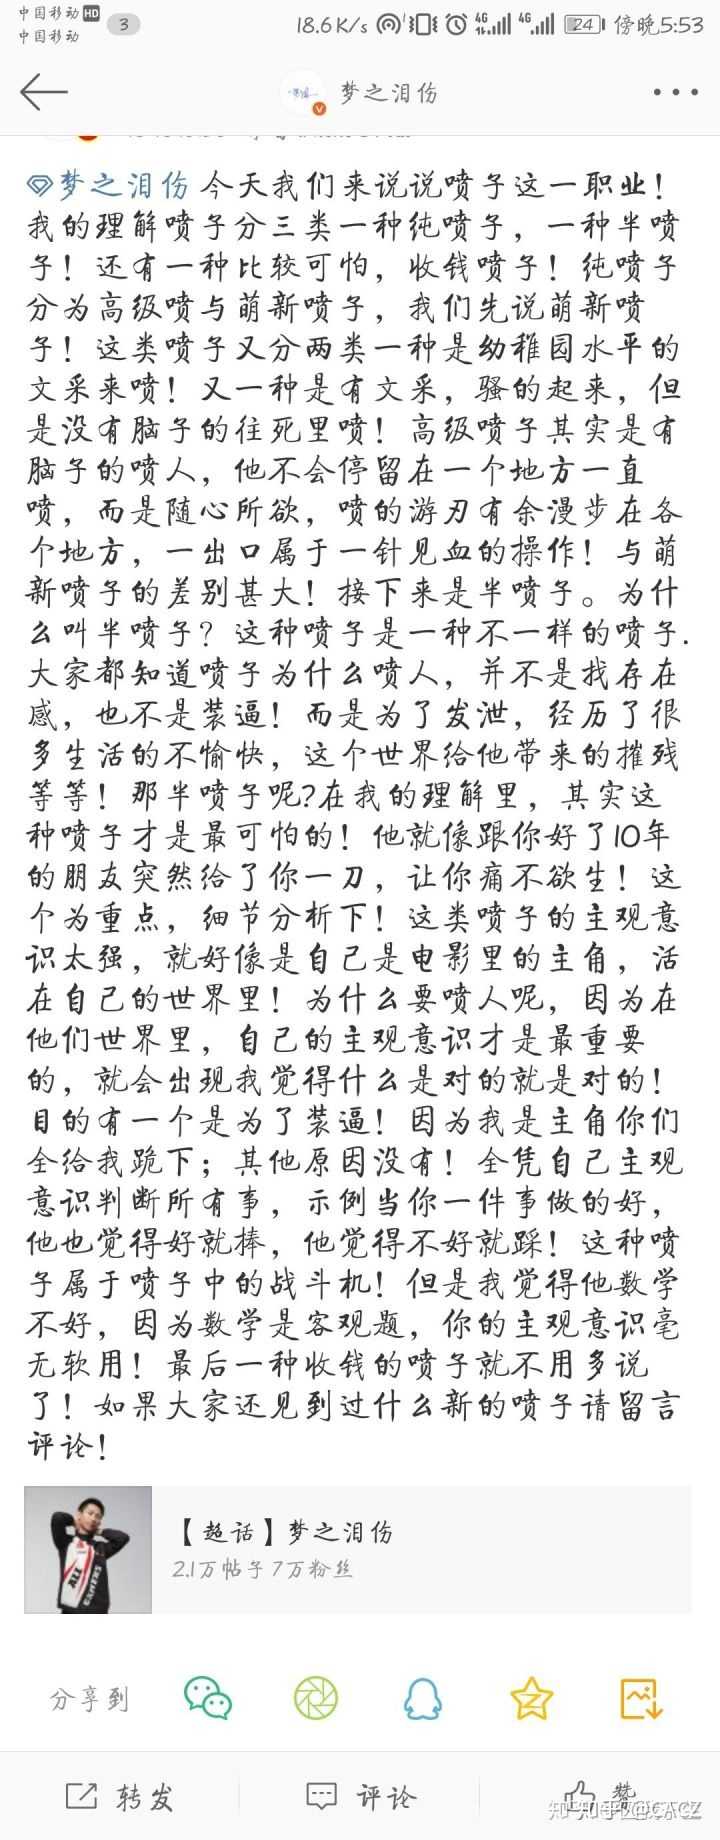 中国移动 HD
中国移动
3
18.6 K/s 4G 4G 24 傍晚5:53
梦之泪伤
梦之泪伤 今天我们来说说喷子这一职业!
我的理解喷子分三类一种纯喷子，一种半喷
子！还有一种比较可怕，收钱喷子！纯喷子
分为高级喷与萌新喷子，我们先说萌新喷
子！这类喷子又分两类一种是幼稚园水平的
文采来喷！又一种是有文采，骚的起来，但
是没有脑子的往死里喷！高级喷子其实是有
脑子的喷人，他不会停留在一个地方一直
喷，而是随心所欲，喷的游刃有余漫步在各
个地方，一出口属于一针见血的操作！与萌
新喷子的差别甚大！接下来是半喷子。为什
么叫半喷子？这种喷子是一种不一样的喷子.
大家都知道喷子为什么喷人，并不是找存在
感，也不是装逼！而是为了发泄，经历了很
多生活的不愉快，这个世界给他带来的摧残
等等！那半喷子呢?在我的理解里，其实这
种喷子才是最可怕的！他就像跟你好了10年
的朋友突然给了你一刀，让你痛不欲生！这
个为重点，细节分析下！这类喷子的主观意
识太强，就好像是自己是电影里的主角，活
在自己的世界里！为什么要喷人呢，因为在
他们世界里，自己的主观意识才是最重要
的，就会出现我觉得什么是对的就是对的！
目的有一个是为了装逼！因为我是主角你们
全给我跪下；其他原因没有！全凭自己主观
意识判断所有事，示例当你一件事做的好，
他也觉得好就捧，他觉得不好就踩！这种喷
子属于喷子中的战斗机！但是我觉得他数学
不好，因为数学是客观题，你的主观意识毫
无软用！最后一种收钱的喷子就不用多说
了！如果大家还见到过什么新的喷子请留言
评论！
【超话】梦之泪伤
2.1万帖子 7万粉丝
ALL
GAMERS
分享到
转发
评论
赞
@CACZ